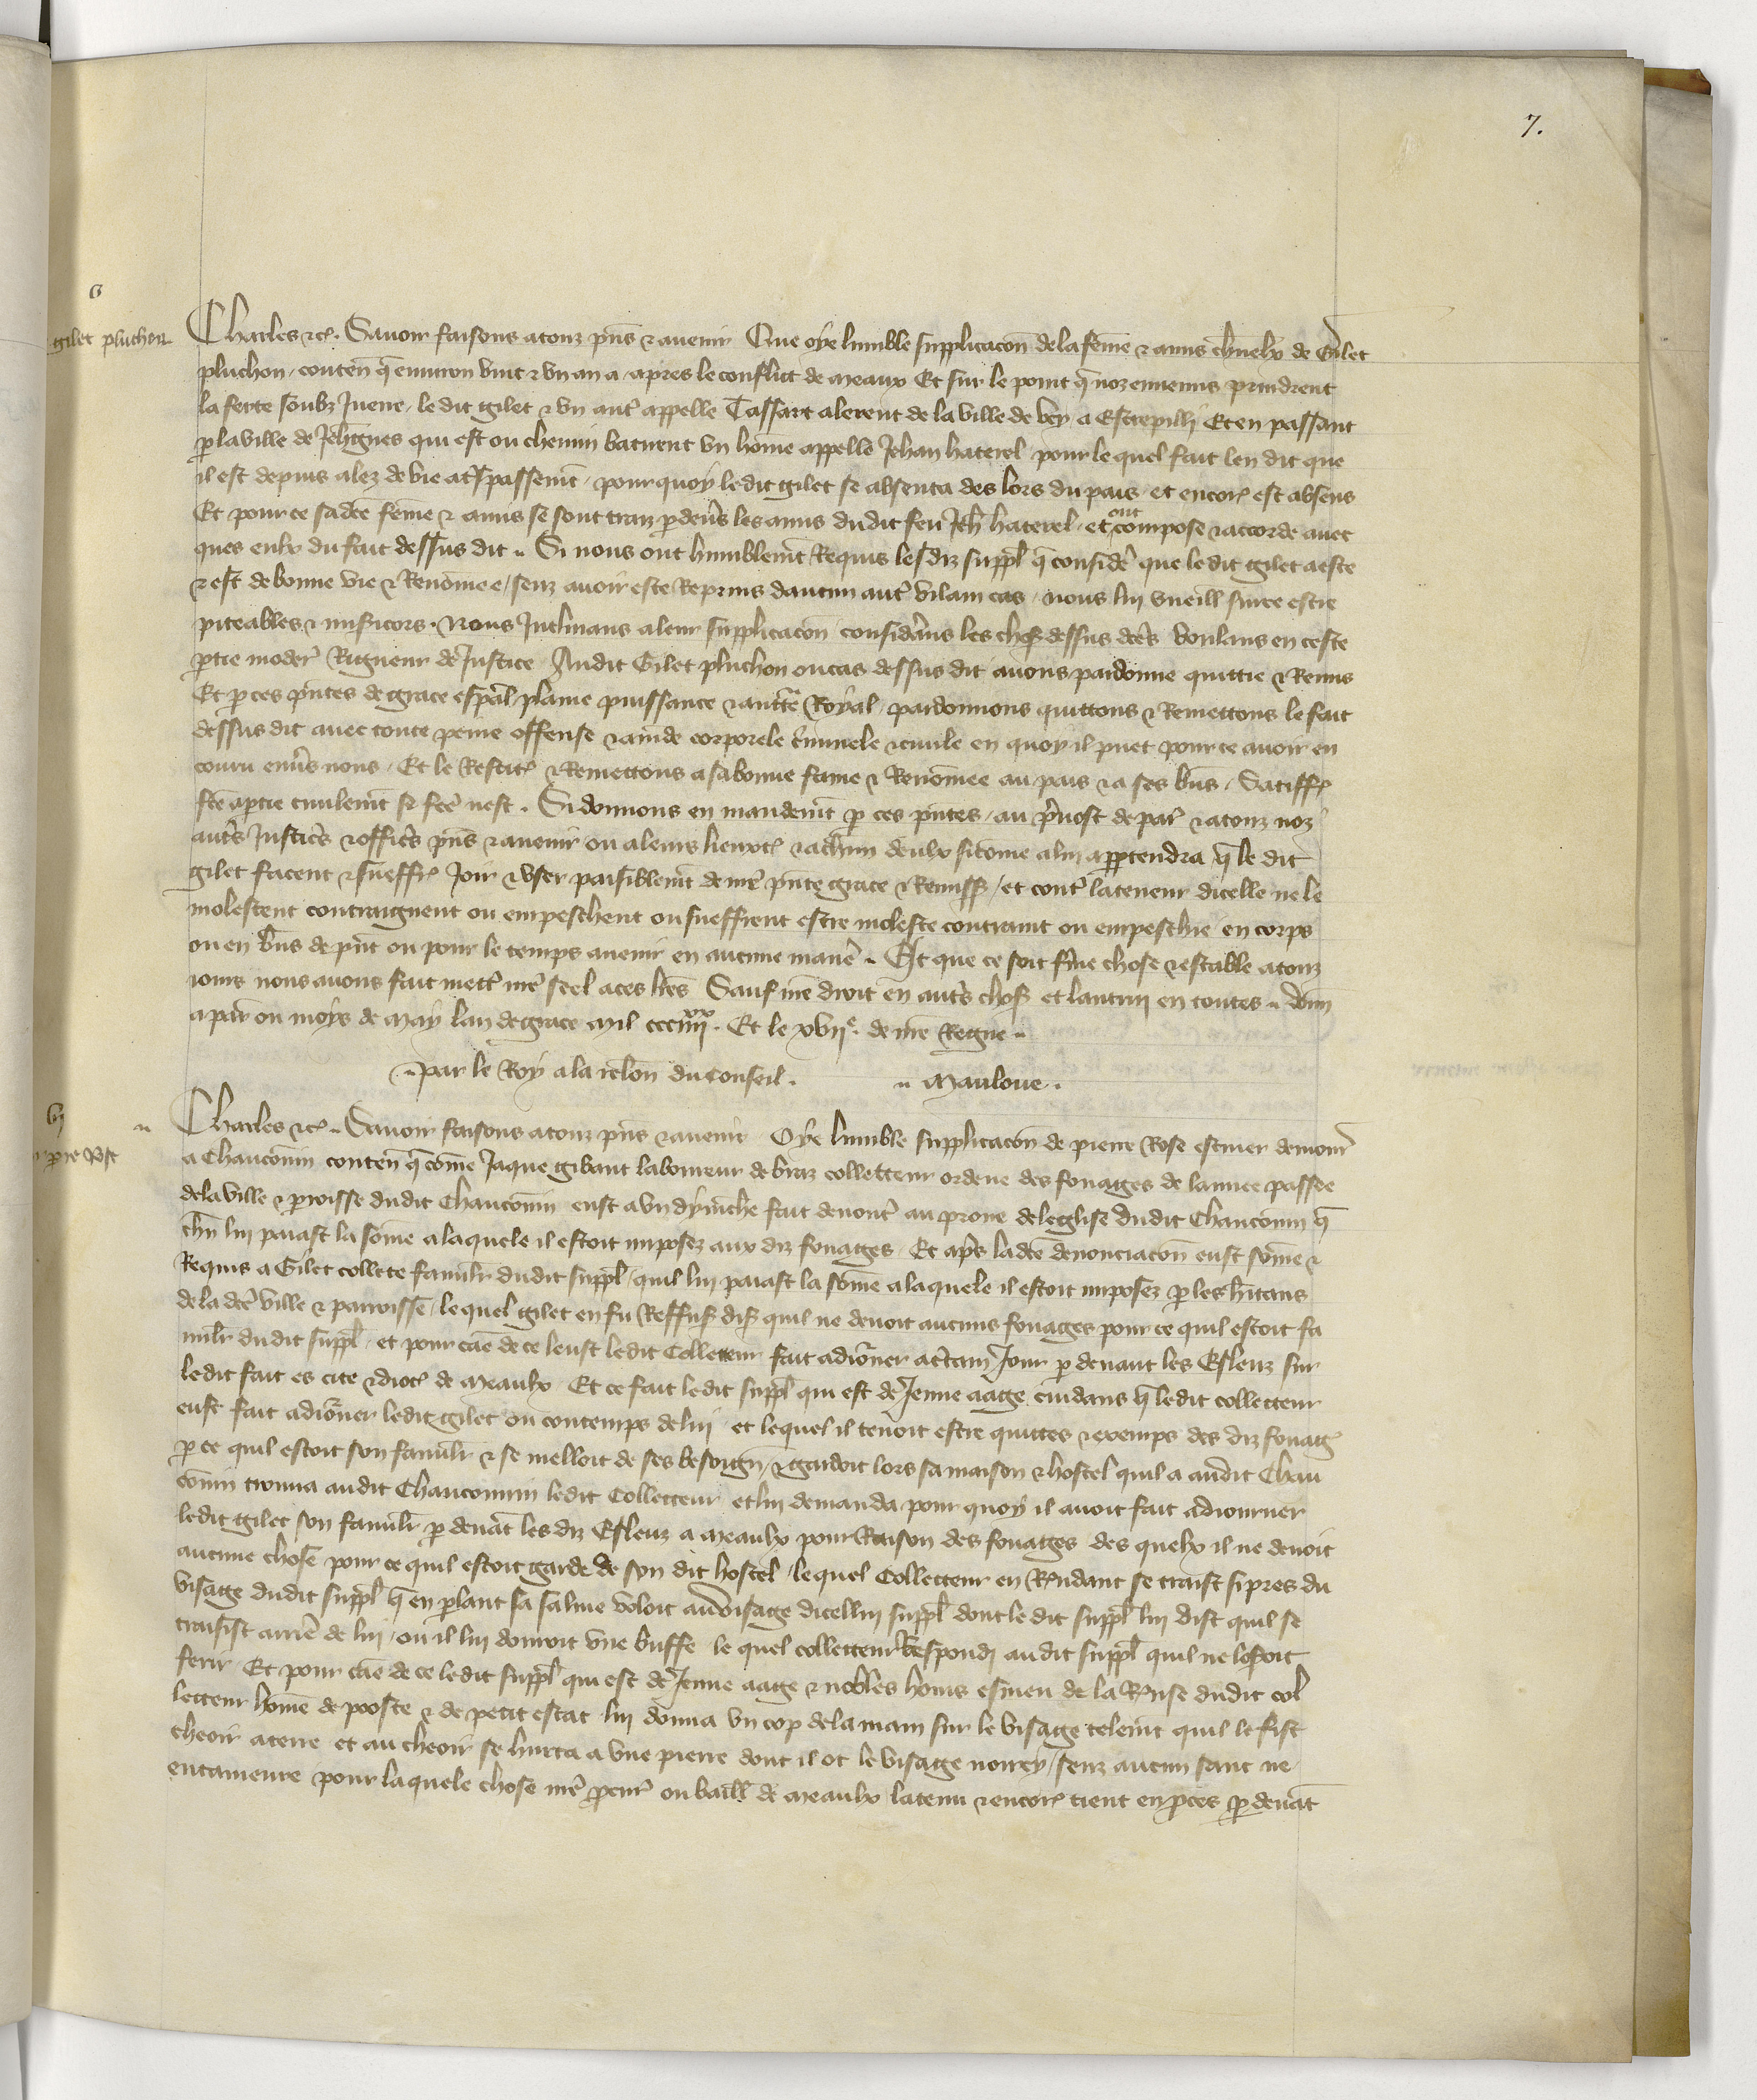 7.
gilet pluchon
Charles etc. Savoir faisons a touz p̃ns & avenir Que oye humble supplicacõn de la fẽme & amis charnelx de Gilet
pluchon, conteñ q̃ environ vint & vn an a, apres le conflict de meaux Et sur le point q̃ noz ennemis prindrent
la ferte soubz Juerre, le dit gilet & vn aut̾ appelle Tassart alerent de la ville de Et en passant
p la ville de Jehignes qui est ou chemin batirent vn hõme appelle Jehan haterel pour le quel fait len dit que
il est depuis alez de vie a t̃spassemẽt, pour quoy le dit gilet se absenta des lors du pais, et encor̾ est absens
Et pour ce sa dc̃e fẽme & amis se sont traiz p deũs les amis du dit feu Jeh̃ haterel, et ont compose & accorde avec
ques eulx du fait dessus dit. Si nous ont humblemẽt Requis les diz suppl̃ q̃ consider̾ que le dit gilet a este
& est de bonne vie & Renõmee, senz avoir este Reprins daucun aut̾ vilain cas, nous lui vueill̃ sur ce estre
piteables & mis̃icors. Nous Inclinans a leur supplicacõn consid̾ans les chos̾ dessus dc̃es voulans en ceste
ptie moder̾ Rigueur de Justice Audit Gilet pluchon ou cas dessus dit avons pardonne quittie & Remis
Et p ces p̃ntes de grace esp̃al, plaine puissance & auct̃e Royal, pardonnons quittons & Remettons le fait
dessus dit avec toute peine offense & amde corporele c̾iminele & civile en quoy il puet pour ce avoir en
couru env̾s nous, Et le Restit̾ & Remettons a sa bonne fame & Renõmee au pais & a ses bñs, Satiff̾
fc̃e a ptie civilemẽt se fc̃e nest. Si donnons en mandemẽt p ces p̃ntes, au p̾vost de par̾ & a touz noz
aut̾s Justic̾s & offic̾s p̃ns & avenir ou a leurs lieuxt̾ & a ch̃un deulx sicome a lui apptendra q̃ le dit
gilet facent & sueffr̾ Joir & vser paisiblemẽt de nr̃e p̃nte grace & Remiss̾, et cont̾ la teneur dicelle ne le
molestent contraignent ou empeschent ou sueffrent estre moleste contraint ou empeschie en corps
ou en bñs de p̃nt ou pour le temps avenir en aucune manie̾. Et que ce soit ferme chose & estable a touz
iours nous avons fait mett̾ nr̃e seel a ces lr̃es Sauf nr̃e droit en aut̾s chos̾ et lautrui en toutes. Doñ
a par̾ ou moys de may lan de grace mil ccc iiii xx. Et le xvii e. de nr̃e Regne.
Par le Roy a la relõn du Conseil. Mauloue.
vj
Charles etc. Savoir faisons a touz p̃ns & avenir Oye humble supplicacõn de pierre Rose escuier demour̾
a Chauconin conteñ q̃ cõme Jaque gibaut laboureur de braz collecteur ordene des fouages de lannee passee
de la ville & pproisse dudit Chauconin eust a vn dymenche fait denonc̾ au prone de leglise dudit Chauconin q̃
ch̃n lui paiast la sõme a laquele il estoit imposez aux diz fouages, Et ap̾s la dc̃e denonciacõn eust sõme &
Requis a Gilet collete famili̾r dudit suppl̃, quil lui paiast la sõme a laquele il estoit imposez p les h̃itans
de la dc̃e ville & parroisse, le quel gilet en fu Reffus̾ dis̾ quil ne devoit aucuns fouages pour ce quil estoit fa
mili̾r dudit suppl̃, et pour cãe de ce leust le dit Collecteur fait adiõrner a c̾tain Jour p devant les Esleuz sur
le dit fait es cite & dioc̾ de meaulx Et ce fait le dit suppl̃ qui est de Jeune aage cuidans q̃ le dit collecteur
eust fait adiõrner le dit gilet ou contemps de lui, et lequel il tenoit estre quittes & exemps des diz fouag̾
p ce quil estoit son famili̾r & se melloit de ses besoign̾, & gardoit lors sa maison & hostel quil a audit Chau
conin trouva audit Chauconnin le dit Collecteur et lui demanda pour quoy il avoit fait adiourner
le dit gilet son famili̾r p devãt les diz Esleuz a meaulx pour Raison des fouages des quelx il ne devoit
aucune chose pour ce quil estoit garde de son dit hostel, lequel Collecteur en Rñdant se traist si pres du
visage dudit suppl̃ q̃ en plant sa salive voloit au visage dicellui suppl̃ dont le dit suppl̃ lui dist quil se
traisist arrie̾ de lui, ou il lui donroit vne buffe le quel collecteur Respondi audit suppl̃ quil ne loseroit
ferir Et pour cãe de ce le dit suppl̃ qui est de Jeune aage & nobles homs esmeu de la Rñse dudit col
lecteur hõme de pooste & de petit estat lui donna vn cop de la main sur le visage telemẽt quil le fist
cheoir a terre et au cheoir se hurta a vne pierre dont il ot le visage noircy, senz aucun sanc ne
entameure pour laquele chose nr̃e pcur̾ ou baill̃ de meaulx la tenu & encor̾ tient en pces p devãt